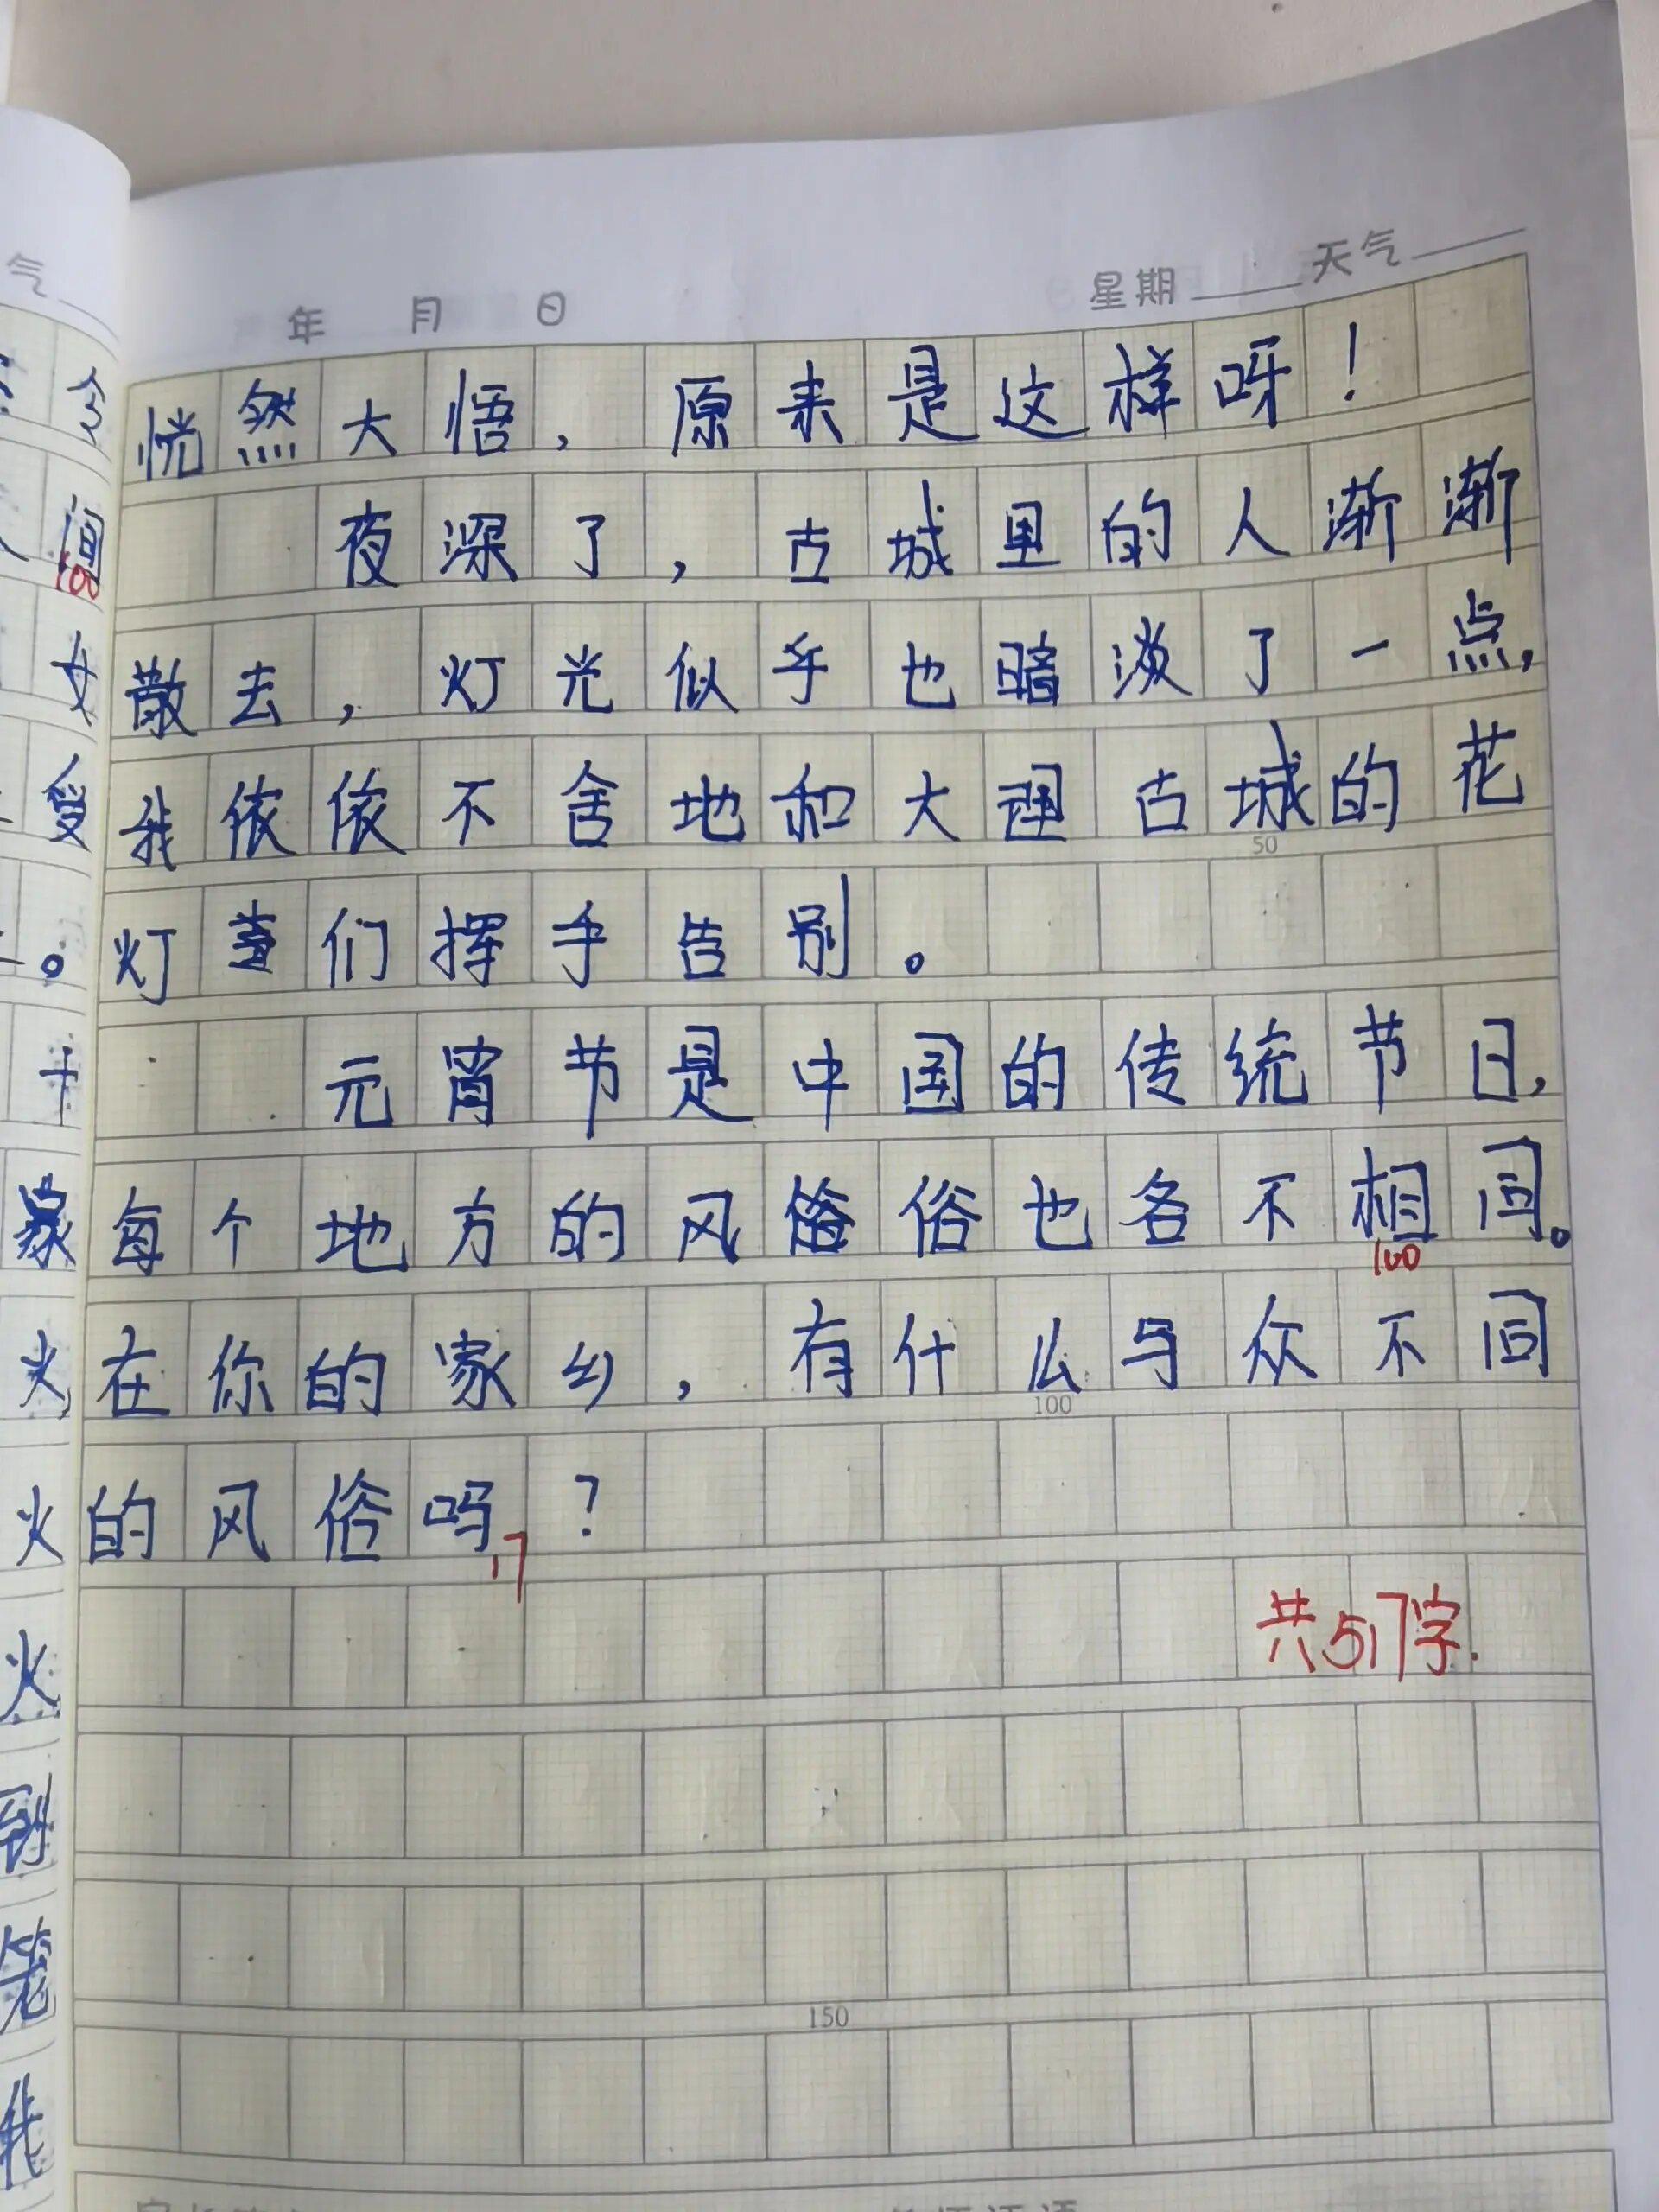 年 月 日 星期 天气
恍然大悟，原来是这样呀！
夜深了，古城里的人渐渐
散去，灯光似乎也暗淡了一点，
我依依不舍地和大理古城的花
50
灯们挥手告别。
元宵节是中国的传统节日，
每个地方的风俗也各不相同。
100
在你的家乡，有什么与众不同
100
的风俗吗？
17
共517字.
150